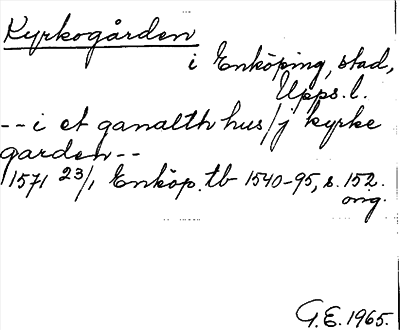 Kyrkogården
i Enköping, stad,
Upps. l.
-- i et gamalth hus/j kyrke
garden --
1571 23/1 Enköp. tb 1540-95, s. 152.
orig.
G.E. 1965.